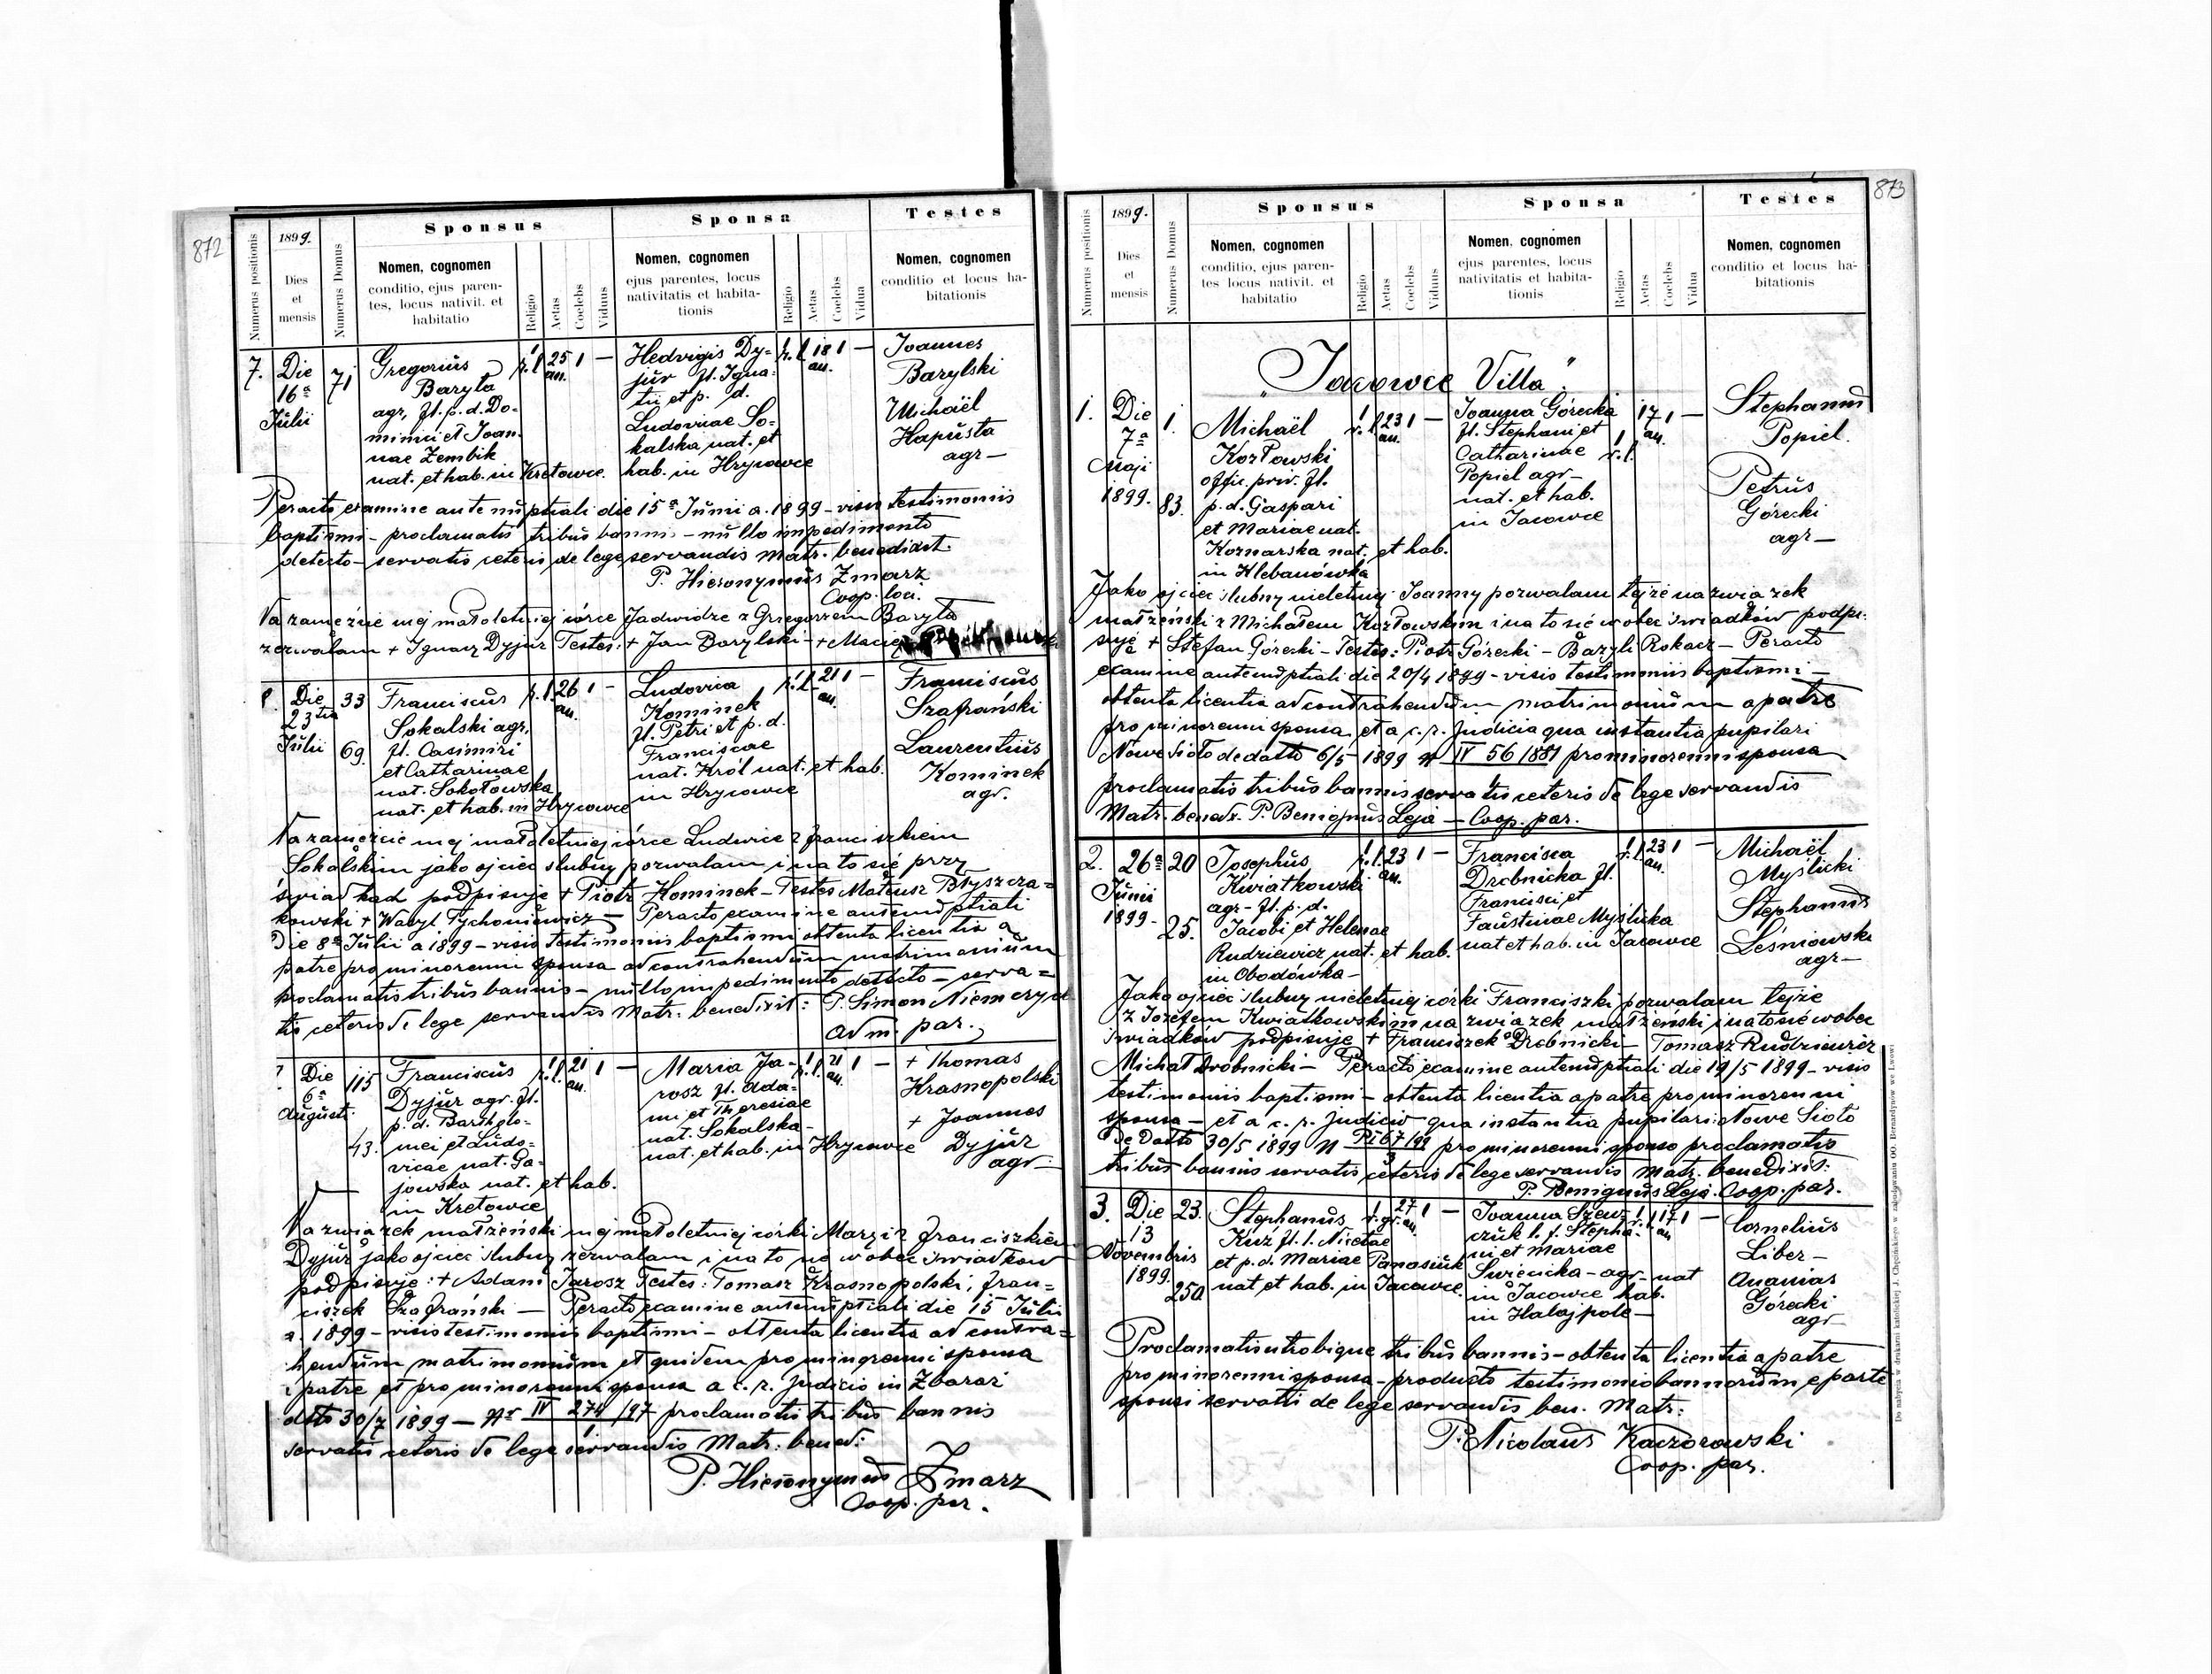 872
Numerus positionis
1899.
Dies
et
mensis
Numerus Domus
Sponsus
Nomen, cognomen
conditio, ejus paren-
tes, locus nativit. et
habitatio
Religio
Aetas
Coelebs
Viduus
Sponsa
Nomen, cognomen
ejus parentes, locus
nativitatis et habita-
tionis
Religio
Aetas
Coelebs
Vidua
Testes
Nomen, cognomen
conditio et locus ha-
bitationis
7. Die 16a Julii
71
Gregorius
Baryła
agr, fl. p. d. Do-
minici et Joan-
nae Zembik
nat. et hab. in Kretowce
r. l. 25 an. 1 —
Hedvigis Dy-
jur fl. Igna-
tii et p. d.
Ludovicae So-
kalska nat. et
hab. in Hrycowce
r. l. 18 an. 1 —
Joannes
Barylski
Michaël
Kapusta
agr —
Peracto examine antenuptiali die 15a Junii a. 1899 – visis testimoniis
baptismi – proclamatis tribus bannis – nullo impedimento
detecto – servatis ceteris de lege servandis matr. benedixit.
P. Hieronymus Zmarz
Coop. loci.
Na zamężcie mej małoletniej córce Jadwidze z Grzegorzem Baryłą
zezwalam + Ignacy Dyjur Testes: + Jan Barylski – + Maciej
8. Die 23tia Julii
33
69.
Franciscus
Sokalski agr,
fl. Casimiri
et Catharinae
nat. Sokołowska
nat. et hab. in Hrycowce
r. l. 26 an. 1 –
Ludovica
Kominek
fl. Petri et p. d.
Franciscae
nat. Król nat. et hab.
in Hrycowce
r. l. 21 an. 1 –
Franciscus
Szafrański
Laurentius
Kominek
agr.
Na zamężcie mej małoletniej córce Ludwice z Franciszkiem
Sokalskim jako ojciec ślubny pozwalam i na to się przy
świadkach podpisuje + Piotr Kominek – Testes Mateusz Błyszcza-
kowski + Wasyl Tychoniewicz – Peracto examine antenuptiali
Die 8a Julii a 1899 – visis testimoniis baptismi obtenta licentia a
patre pro minorenni sponsa ad contrahendum matrimonium
proclamatis tribus bannis – nullo impedimento detecto – serva-
tis ceteris de lege servandis Matr. benedixit: P. Simon Niemczyk
adm. par.
Die 6a Augusti
115
43.
Franciscus
Dyjur agr. fl.
p. d. Bartholo-
mei et Ludo-
vicae nat. Ga-
jowska nat. et hab.
in Kretowce
r. l. 21 an. 1 —
Maria Ja-
rosz fl. Ada-
mi et Theresiae
nat. Sokalska –
nat. et hab. in Hrycowce
r. l. 21 an. 1 —
+ Thomas
Krasnopolski
+ Joannes
Dyjur
agr –
Na związek małżeński mej małoletniej córki Maryi z Franciszkiem
Dyjur jako ojciec ślubny zezwalam i na to się wobec świadków
podpisuje: + Adam Jarosz Testes: Tomasz Krasnopolski, Fran-
ciszek Szafrański — Peracto examine antenuptiali die 15 Julii
a. 1899 – visis testimoniis baptismi – obtenta licentia ad contra-
hendum matrimonium et quidem pro minorenni sponsa
a patre et pro minorenni sponso a c. r. Judicio in Zbaraż
ddto 30/7 1899 — Nr IV 274/97 proclamatis tribus bannis
servatis ceteris de lege servandis Matr: bened:
P. Hieronymus Zmarz
Coop. par.
873
Numerus positionis
1899.
Dies
et
mensis
Numerus Domus
Sponsus
Nomen, cognomen
conditio, ejus paren-
tes locus nativit. et
habitatio
Religio
Aetas
Coelebs
Viduus
Sponsa
Nomen, cognomen
ejus parentes, locus
nativitatis et habita-
tionis
Religio
Aetas
Coelebs
Vidua
Testes
Nomen, cognomen
conditio et locus ha-
bitationis
„Jacowce Villa".
1. Die 7a Maji 1899.
1.
83.
Michaël
Kozłowski
offic. priv. fl.
p. d. Gaspari
et Mariae nat.
Koznarska nat. et hab.
in Klebanówka
r. l. 23 an. 1 —
Joanna Górecka
fl. Stephani et
Catharinae
Popiel agr –
nat. et hab.
in Jacowce
r. l. 17 an. 1 —
Stephanus
Popiel.
Petrus
Górecki
agr —
Jako ojciec ślubny nieletniej Joanny pozwalam tejże na związek
małżeński z Michałem Kozłowskim i na to się wobec świadków podpi-
suję + Stefan Górecki – Testes: Piotr Górecki – Bazyli Rokacz — Peracto
examine antenuptiali die 20/4 1899 – visis testimoniis baptismi –
obtenta licentia ad contrahendum matrimonium a patre
pro minorenni sponsa et a c. r. Judicio qua instantia pupilari
Nowe Sioło de datto 6/5 1899 N IV 56/1881 pro minorenni sponsa
proclamatis tribus bannis servatis ceteris de lege servandis
Matr. bened. P. Benignus Leja — Coop. par.
2. 26a Junii 1899 –
20
25.
Josephus
Kwiatkowski
agr – fl. p. d.
Jacobi et Helenae
Rudziewicz nat. et hab.
in Obodówka –
r. l. 23 an. 1 —
Francisca
Drobnicka fl.
Francisci et
Faustinae Myślicka
nat et hab. in Jacowce
r. l. 23 an. 1 —
Michaël
Myślicki
Stephanus
Leśniowski
agr —
Jako ojciec ślubny nieletniej córki Franciszki pozwalam tejże
z Józefem Kwiatkowskim na związek małżeński i na to się wobec
świadków podpisuje + Franciszek Drobnicki – Tomasz Rudziewicz
Michał Drobnicki — Peracto examine antenuptiali die 19/5 1899 – visis
testimoniis baptismi – obtenta licentia a patre pro minorenni
sponsa — et a c. r. Judicio qua instantia pupilari Nowe Sioło
de datto 30/5 1899 N P I 67/99 3 pro minorenni sponso proclamatis
tribus bannis servatis ceteris de lege servandis Matr. benedixit.
P. Benignus Leja Coop. par.
3. Die 13 Novembris 1899.
23.
250
Stephanus
Kuź fl. l. Nicetae
et p. d. Mariae Panasiuk
nat et hab. in Jacowce
r. gr. 27 an. 1 —
Joanna Szew-
czuk l. f. Stepha-
ni et Mariae
Święcicka – agr – nat
in Jacowce hab.
in Hałajpole —
r. l. 17 an. 1 —
Cornelius
Liber –
Ananias
Górecki
agr —
Proclamatis utrobique tribus bannis – obtenta licentia a patre
pro minorenni sponsa – producto testimonio bannorum e parte
sponsi servatis de lege servandis ben. Matr:
P. Nicolaus Kaczorowski
Coop. par.
Do nabycia w drukarni katolickiej J. Chęcińskiego w zabudowaniu OO. Bernardynów we Lwowie